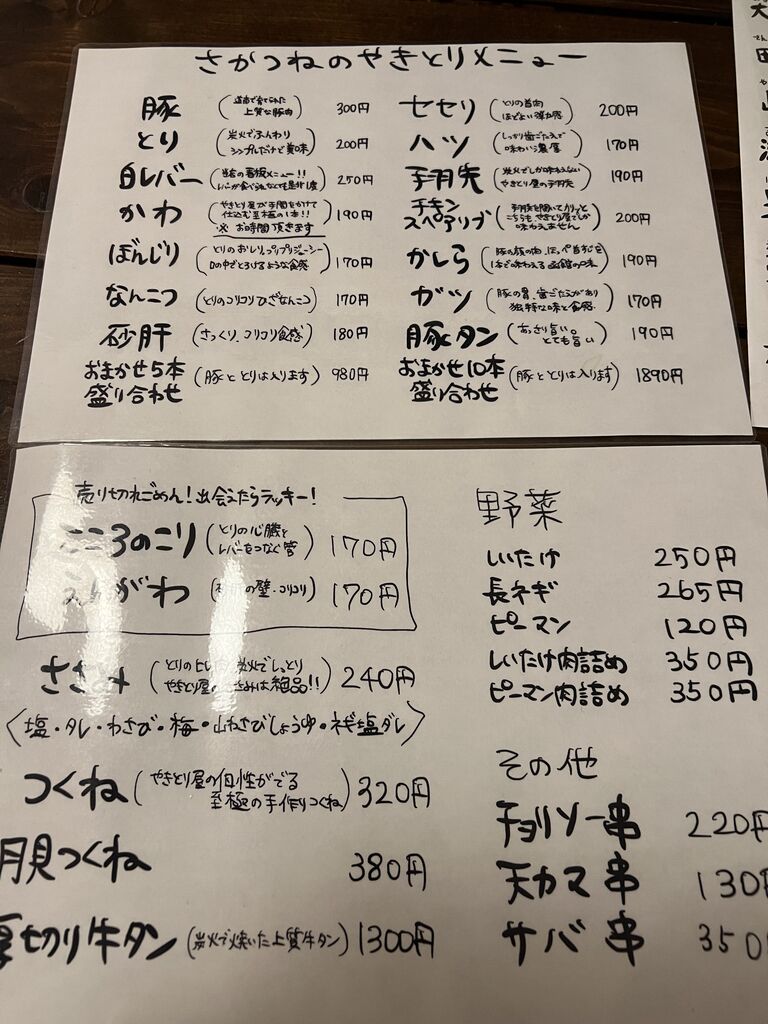 さかつねのやきとりメニュー
豚 (道南で育てられた 上質な豚肉) 300円
とり (炭火でふんわり シンプルだけど美味) 200円
白レバー (当店の看板メニュー!! レバーが食べられない方も是非1度) 250円
かわ (やきとり屋が手間をかけて 仕込む至極の1本!! ※お時間頂きます) 190円
ぼんじり (とりのおしり、プリプリジューシー 口の中でとろけるような食感) 170円
なんこつ (とりのコリコリひざなんこつ) 170円
砂肝 (さっくり、コリコリ食感) 180円
おまかせ5本
盛り合わせ (豚ととりは入ります) 980円
セセリ (とりの首肉 ほどよい弾力感) 200円
ハツ (しっかり歯ごたえで 味わい濃厚) 170円
手羽先 (炭火でしか味わえない やきとり屋の手羽先) 190円
チキン
スペアリブ (手羽先を開いてカリッと こちらもやきとり屋でしか 味わえません) 200円
かしら (豚の顔の肉、ほっぺ 1本で味わえる函館の味) 190円
ガツ (豚の胃、歯ごたえがあり 独特な味と食感) 170円
豚タン (あっさり旨い。 とても旨い) 190円
おまかせ10本
盛り合わせ (豚ととりは入ります) 1890円
売り切れごめん!出会えたらラッキー!
こころのこり (とりの心臓と レバーをつなぐ管) 170円
えんがわ (の壁・コリコリ) 170円
ささみ (とりのヒレ 炭火でしっとり やきとり屋のささみは絶品!!) 240円
〈塩・タレ・わさび・梅・山わさびしょうゆ・ネギ塩ダレ〉
つくね (やきとり屋の個性がでる 至極の手作りつくね) 320円
月見つくね 380円
厚切り牛タン (炭火で焼いた上質牛タン) 1300円
野菜
しいたけ 250円
長ネギ 265円
ピーマン 120円
しいたけ肉詰め 350円
ピーマン肉詰め 350円
その他
チョリソー串 220円
天カマ串 130円
サバ串 350